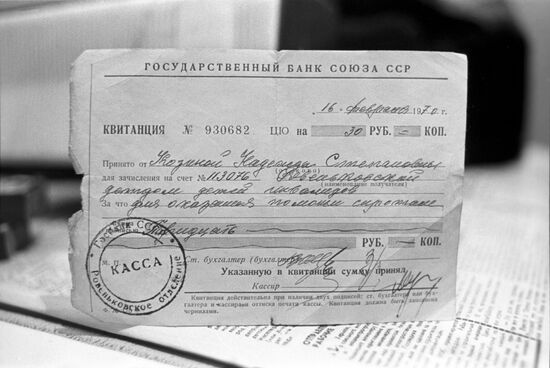 ГОСУДАРСТВЕННЫЙ БАНК СОЮЗА ССР
16 февраля 1970 г.
КВИТАНЦИЯ № 930682 ЦЮ на 30 РУБ. — КОП.
Принято от Козиной Надежды Степановны
для зачисления на счет № 113076
(наименование получателя)
детдом детей инвалидов
За что для оказания помощи сиротам
Тридцать
РУБ. — КОП.
М. П. Ст. бухгалтер (бухгалтер)
Указанную в квитанции сумму принял
Кассир
Квитанция действительна при наличии двух подписей: ст. бухгалтера или бух-
галтера и кассира и оттиска печати кассы. Квитанция должна быть заполнена
чернилами.
Госбанк СССР
КАССА
Ровеньковское отделение